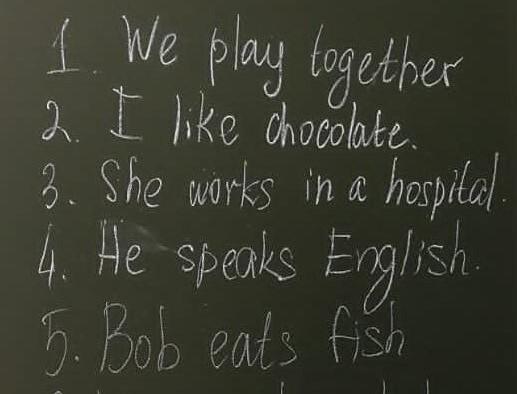 1. We play together
2. I like chocolate.
3. She works in a hospital.
4. He speaks English.
5. Bob eats fish